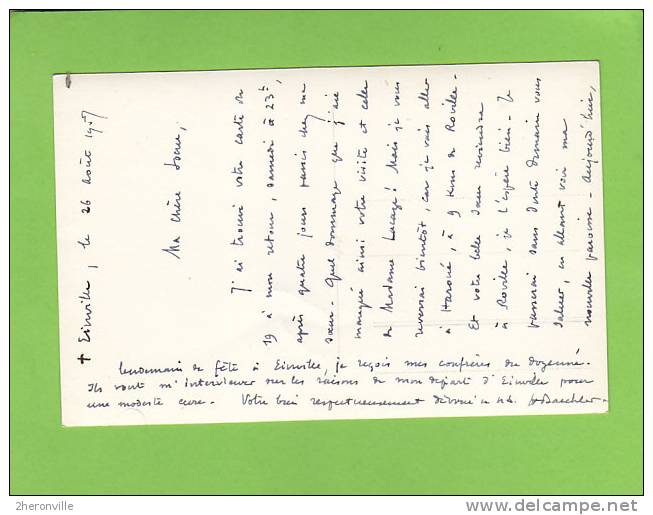 + Einville, le 26 août 1957
Ma chère Soeur,
J'ai trouvé votre carte du
19 à mon retour, samedi à 23h,
après quatre jours passés chez ma
soeur. Quel dommage que j'aie
manqué ainsi votre visite et celle
de Madame Lacaze! Mais je vous
reverrai bientôt, car je vais aller
à Haroué, à 9 kms de Roville.
Et votre belle soeur reviendra
à Roville, je l'espère bien. Je
passerai sans doute demain vous
saluer, en allant voir ma
nouvelle paroisse. Aujourd'hui,
lendemain de fête à Einville, je reçois mes confrères du doyenné.
Ils vont m'interviewer sur les raisons de mon départ d'Einville pour
une modeste cure. Votre bien respectueusement dévoué en Baechler
2heronville
www.delcampe.net